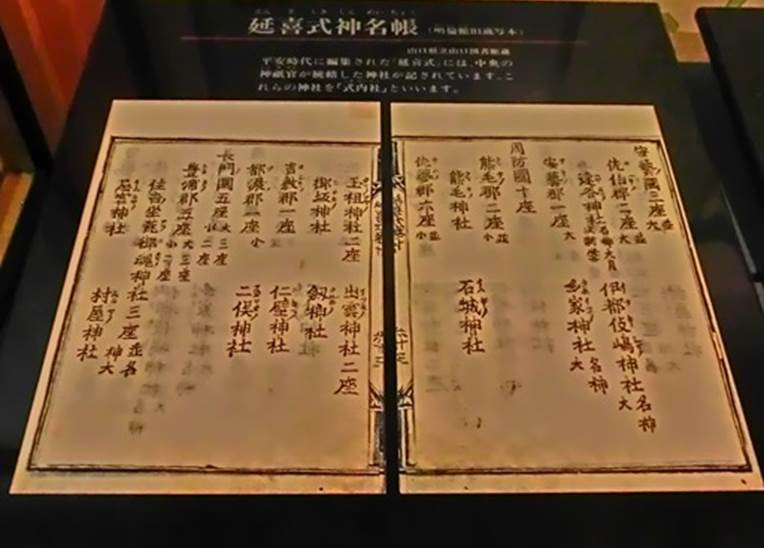 延喜式神名帳（明倫館旧蔵写本）
山口県立山口図書館蔵
平安時代に編集された「延喜式」には、中央の
神祇官が統轄した神社が記されています。こ
れらの神社を「式内社」といいます。
安藝國三座並大
佐伯郡二座並大
速谷神社名神大月次新嘗 伊都伎嶋神社名神大
安藝郡一座大
多家神社名神大
周防國十座
熊毛郡二座並小
熊毛神社 石城神社
佐波郡六座並小
玉祖神社二座 出雲神社二座
御坂神社 劔神社
吉敷郡一座小
仁壁神社
都濃郡一座小
二俣神社
長門國五座大三座小二座
豊浦郡五座大三座小二座
住吉坐荒御魂神社三座並名神大
村屋神社